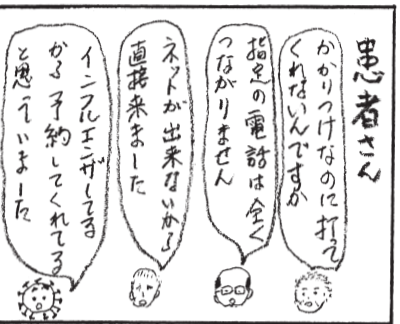 患者さん
かかりつけなのに打って
くれないんですか
指定の電話は全く
つながりません
ネットが出来ないから
直接来ました
インフルエンザしてる
から予約してくれてる
と思っていました